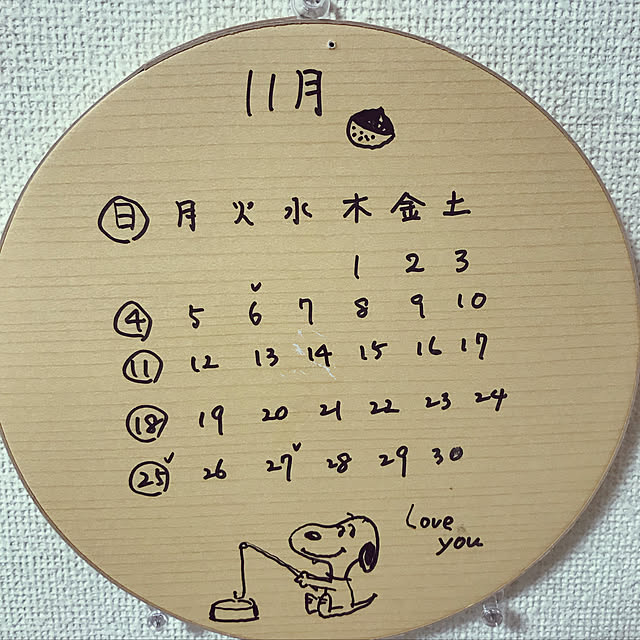 11月
日 月 火 水 木 金 土
1 2 3
4 5 6 7 8 9 10
11 12 13 14 15 16 17
18 19 20 21 22 23 24
25 26 27 28 29 30
Love
you